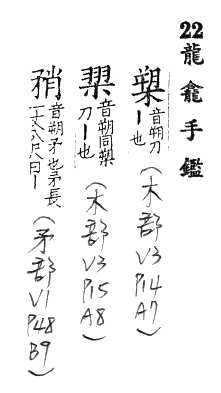 22 龍龕手鑑
槊 音朔刀丨也 (木部 V3 P14 A7)
音朔同槊刀丨也 (木部 V3 P15 A8)
矟 音朔矛也矛長一丈八尺曰丨 (矛部 V1 P48 B9)